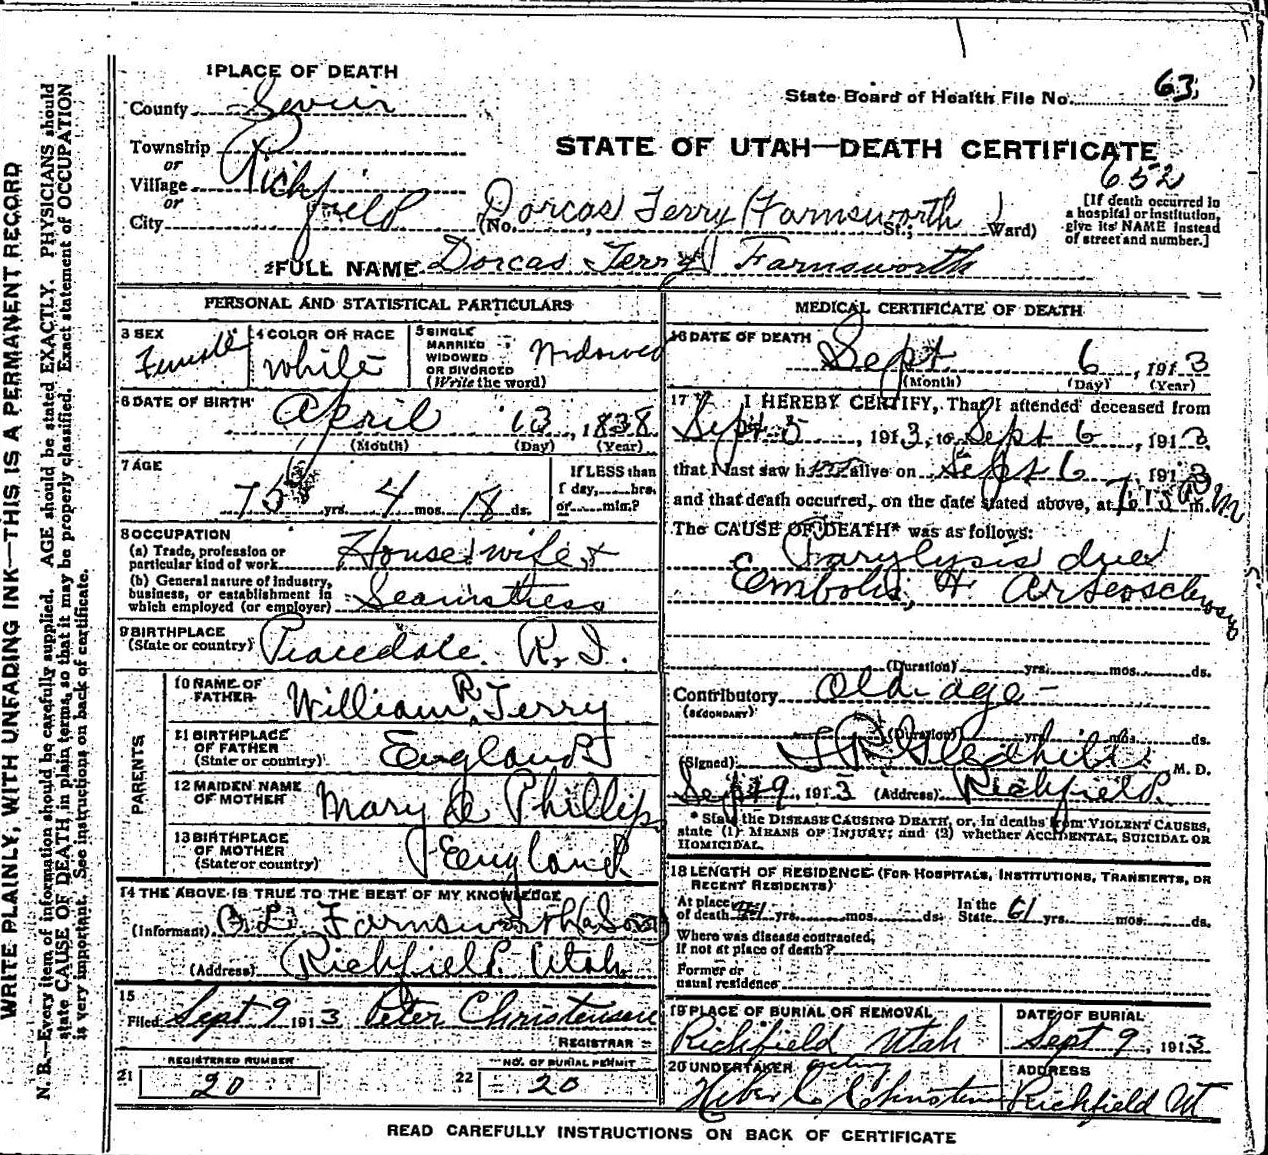 WRITE PLAINLY, WITH UNFADING INK—THIS IS A PERMANENT RECORD
N. B.—Every item of information should be carefully supplied. AGE should be stated EXACTLY. PHYSICIANS should
state CAUSE OF DEATH in plain terms, so that it may be properly classified. Exact statement of OCCUPATION
is very important. See instructions on back of certificate.
1 PLACE OF DEATH
County Sevier
Township
or
Village Richfield
or
City
State Board of Health File No. 63
STATE OF UTAH—DEATH CERTIFICATE
652
(No. Dorcas Terry Farnsworth St.; Ward)
[If death occurred in
a hospital or institution,
give its NAME instead
of street and number.]
2 FULL NAME Dorcas Terry Farnsworth
PERSONAL AND STATISTICAL PARTICULARS
3 SEX Female
4 COLOR OR RACE white
5 SINGLE
MARRIED
WIDOWED
OR DIVORCED
(Write the word) Widowed
6 DATE OF BIRTH April 13, 1838
(Month) (Day) (Year)
7 AGE 75 yrs. 4 mos. 18 ds.
If LESS than
1 day, hrs.
or min.?
8 OCCUPATION
(a) Trade, profession or
particular kind of work Housewife &
(b) General nature of industry,
business, or establishment in
which employed (or employer) Seamstress
9 BIRTHPLACE
(State or country) Peacedale R.I.
PARENTS
10 NAME OF
FATHER William R. Terry
11 BIRTHPLACE
OF FATHER
(State or country) England
12 MAIDEN NAME
OF MOTHER Mary Phillips
13 BIRTHPLACE
OF MOTHER
(State or country) England
14 THE ABOVE IS TRUE TO THE BEST OF MY KNOWLEDGE
(Informant) Farnsworth (a Son)
(Address) Richfield Utah
15
Filed Sept 9 1913 Peter Christensen
REGISTRAR
REGISTERED NUMBER
21 20
NO. OF BURIAL PERMIT
22 20
MEDICAL CERTIFICATE OF DEATH
16 DATE OF DEATH
Sept 6, 1913
(Month) (Day) (Year)
17 I HEREBY CERTIFY, That I attended deceased from
Sept 5, 1913, to Sept 6, 1913
that I last saw her alive on Sept 6 1913
and that death occurred, on the date stated above, at m.
The CAUSE OF DEATH* was as follows:
Paralysis due
Emboli,
(Duration) yrs. mos. ds.
Contributory Old age -
(SECONDARY)
(Duration) yrs. mos. ds.
(Signed) Gledhill M. D.
Sept 9, 1913 (Address) Richfield
* State the DISEASE CAUSING DEATH, or, in deaths from VIOLENT CAUSES,
state (1) MEANS OF INJURY; and (2) whether ACCIDENTAL, SUICIDAL OR
HOMICIDAL.
18 LENGTH OF RESIDENCE (FOR HOSPITALS, INSTITUTIONS, TRANSIENTS, OR
RECENT RESIDENTS)
At place
of death yrs. mos. ds.
In the
State 61 yrs. mos. ds.
Where was disease contracted,
If not at place of death?
Former or
usual residence
19 PLACE OF BURIAL OR REMOVAL
Richfield Utah
DATE OF BURIAL
Sept 9, 1913
20 UNDERTAKER
Heber C. Christensen
ADDRESS
Richfield Ut
READ CAREFULLY INSTRUCTIONS ON BACK OF CERTIFICATE